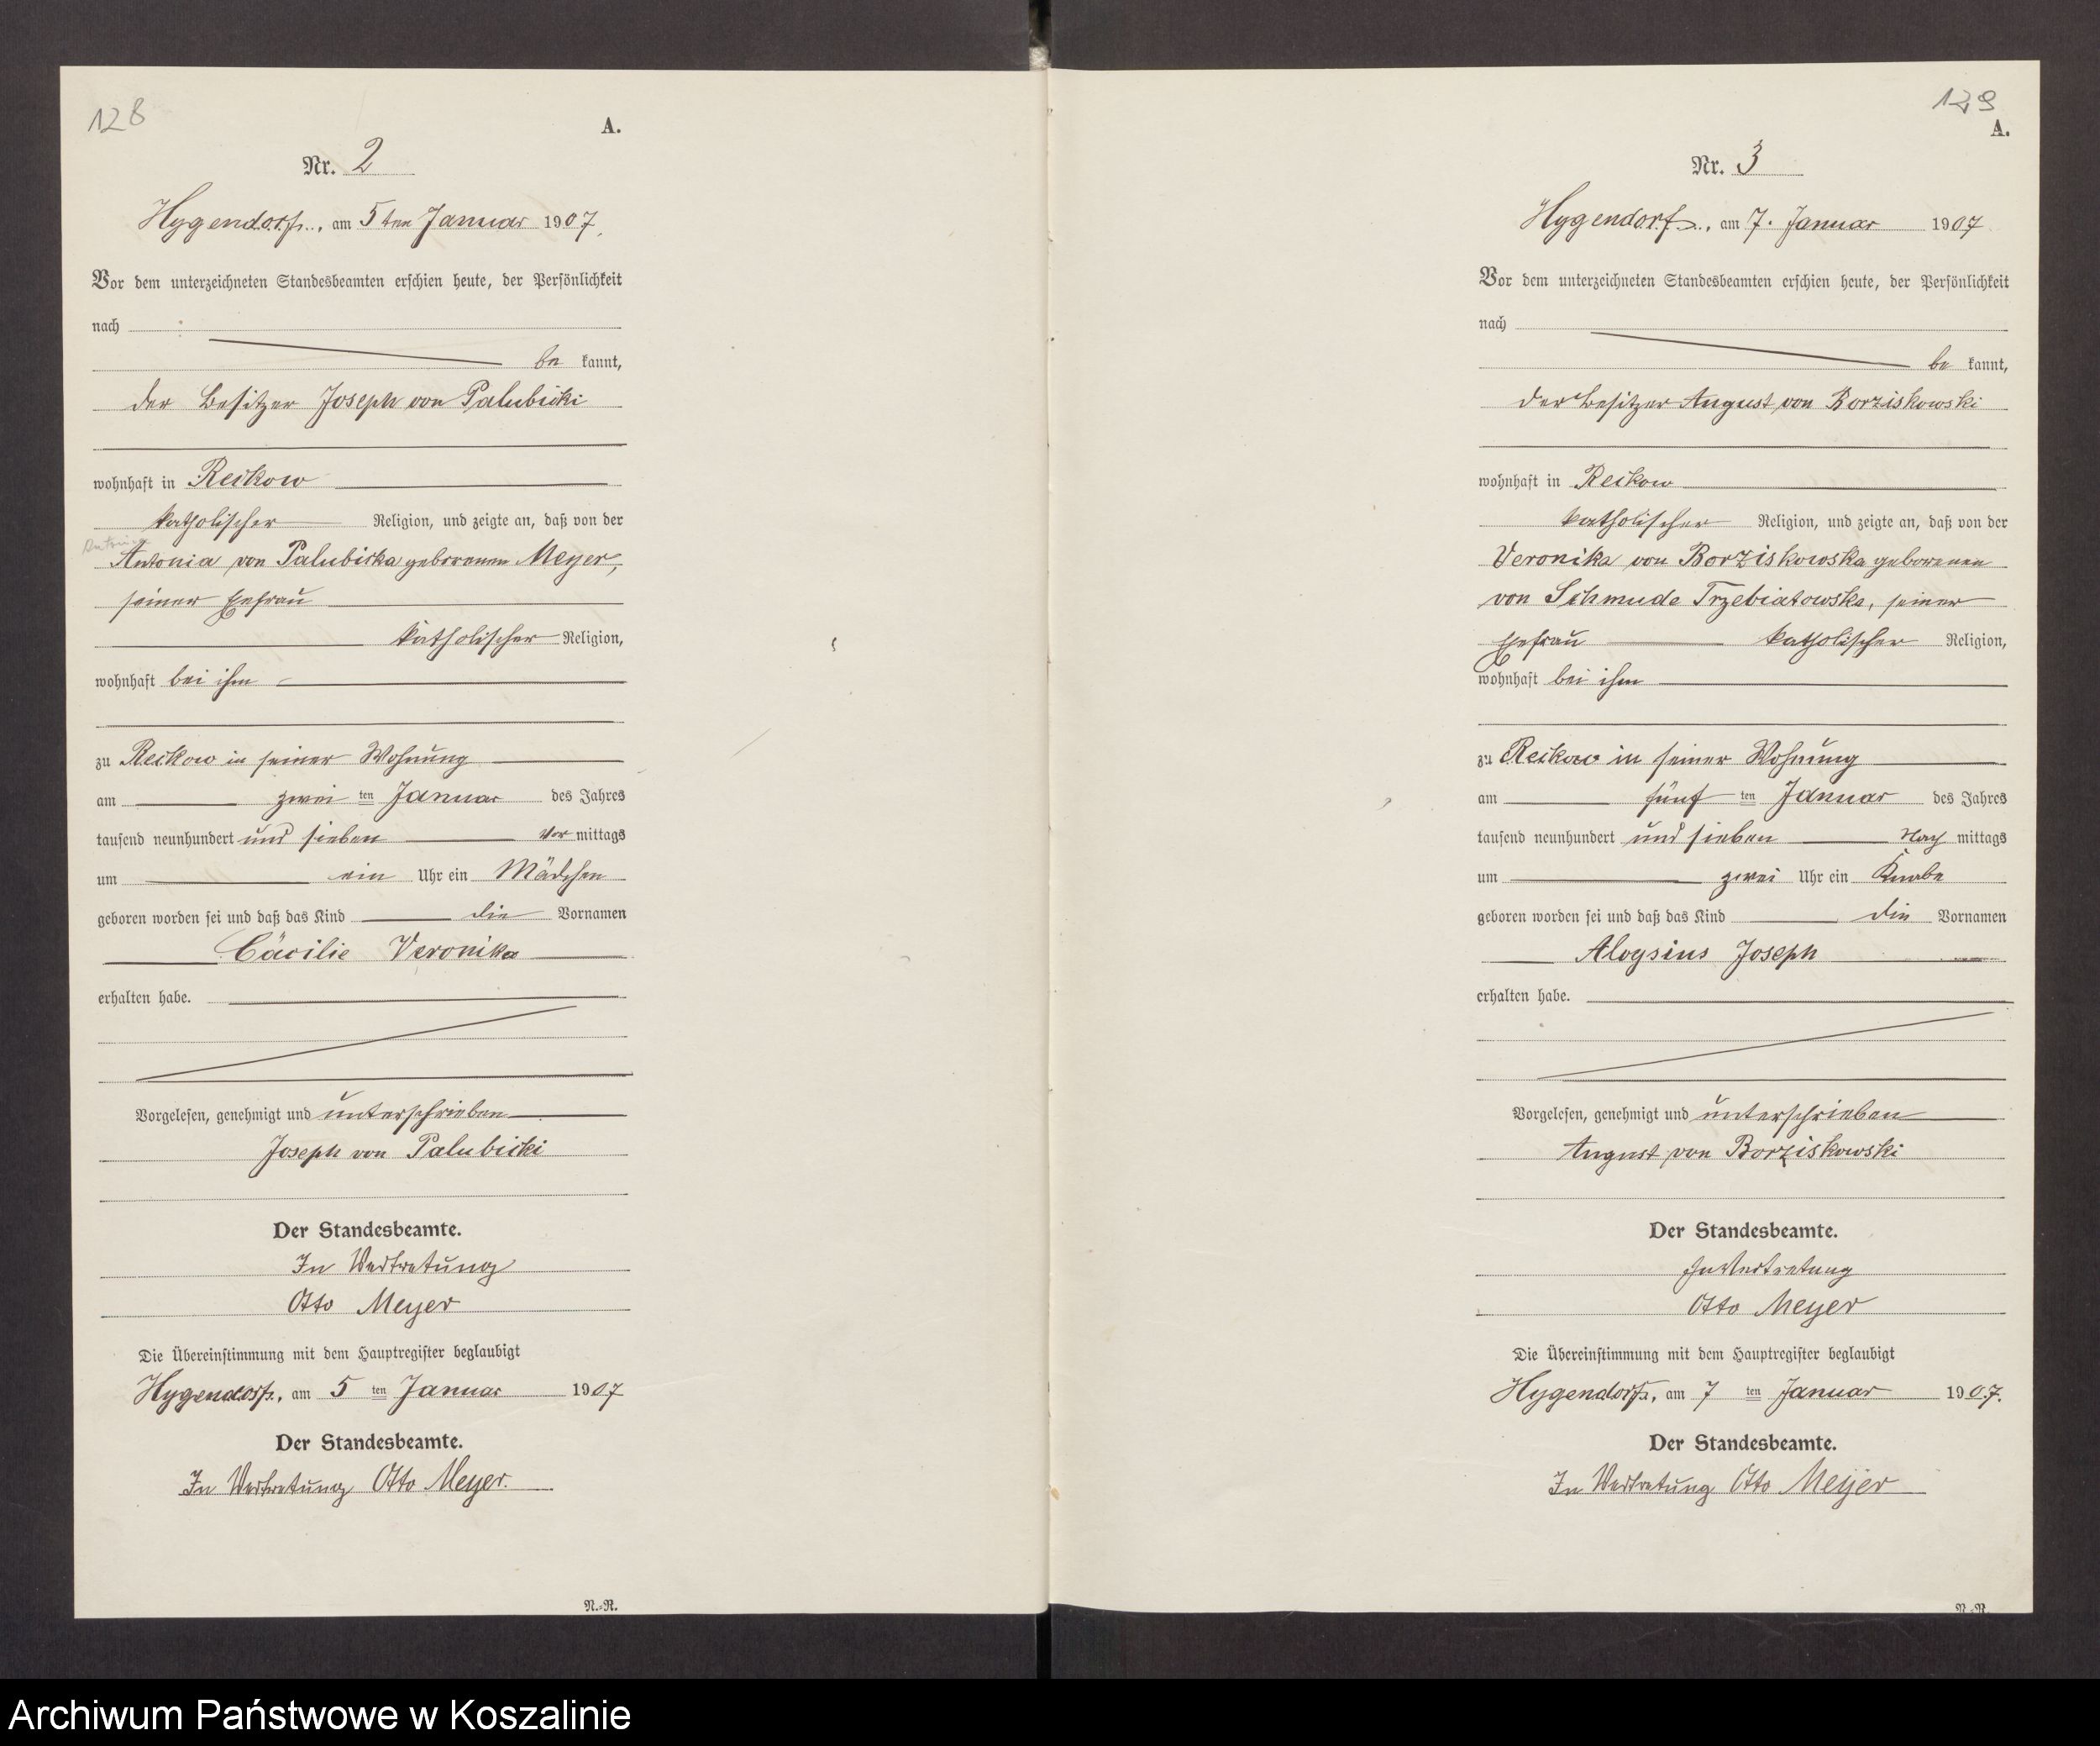 128
A.
Nr. 2
Hygendorf, am 5ten Januar 1907.
Vor dem unterzeichneten Standesbeamten erschien heute, der Persönlichkeit
nach
be kannt,
der Besitzer Joseph von Palubicki
wohnhaft in Reckow
katholischer Religion, und zeigte an, daß von der
Antonia von Palubicka geborenen Meyer,
seiner Ehefrau
katholischer Religion,
wohnhaft bei ihm
zu Reckow in seiner Wohnung
am zwei ten Januar des Jahres
tausend neunhundert und sieben Vor mittags
um ein Uhr ein Mädchen
geboren worden sei und daß das Kind die Vornamen
Cäcilie Veronika
erhalten habe.
Vorgelesen, genehmigt und unterschrieben
Joseph von Palubicki
Der Standesbeamte.
In Vertretung
Otto Meyer
Die Übereinstimmung mit dem Hauptregister beglaubigt
Hygendorf, am 5 ten Januar 1907
Der Standesbeamte.
In Vertretung Otto Meyer.
N.-R.
129
A.
Nr. 3
Hygendorf, am 7. Januar 1907
Vor dem unterzeichneten Standesbeamten erschien heute, der Persönlichkeit
nach
be kannt,
der Besitzer August von Borziskowski
wohnhaft in Reckow
katholischer Religion, und zeigte an, daß von der
Veronika von Borziskowska geborenen
von Schmude Trzebiatowska, seiner
Ehefrau katholischer Religion,
wohnhaft bei ihm
zu Reckow in seiner Wohnung
am fünf ten Januar des Jahres
tausend neunhundert und sieben Nach mittags
um zwei Uhr ein Knabe
geboren worden sei und daß das Kind die Vornamen
Aloysius Joseph
erhalten habe.
Vorgelesen, genehmigt und unterschrieben
August von Borziskowski
Der Standesbeamte.
In Vertretung
Otto Meyer
Die Übereinstimmung mit dem Hauptregister beglaubigt
Hygendorf, am 7 ten Januar 1907.
Der Standesbeamte.
In Vertretung Otto Meyer
N.-R.
Archiwum Państwowe w Koszalinie